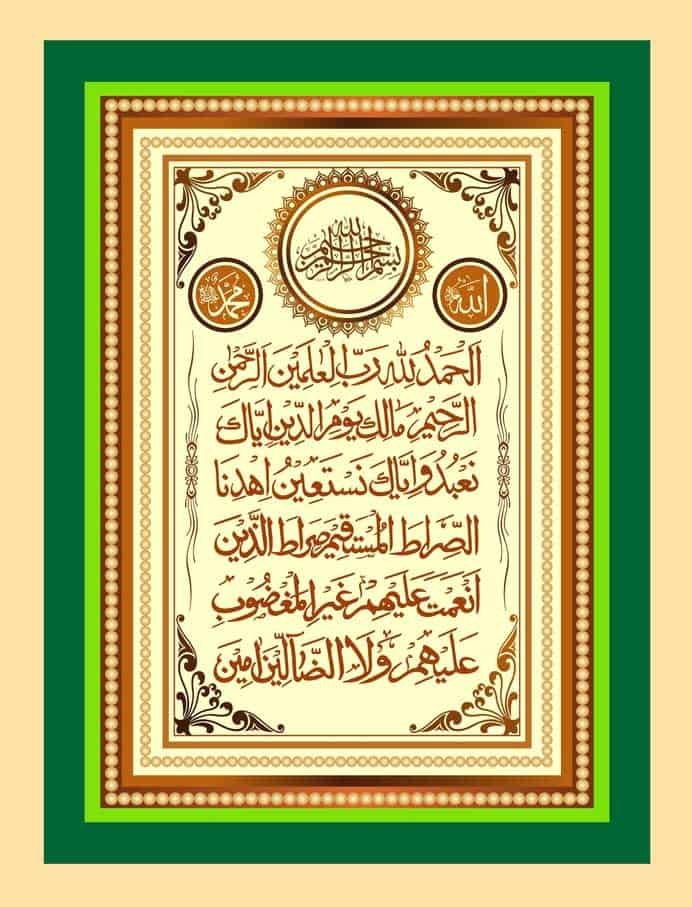 بسم الله الرحمن الرحيم
الله
محمد
اَلْحَمْدُ لِلّٰهِ رَبِّ الْعٰلَمِيْنَ اَلرَّحْمٰنِ
الرَّحِيْمِ مَالِكِ يَوْمِ الدِّيْنِ اِيَّاكَ
نَعْبُدُ وَاِيَّاكَ نَسْتَعِيْنُ اِهْدِنَا
الصِّرَاطَ الْمُسْتَقِيْمَ صِرَاطَ الَّذِيْنَ
اَنْعَمْتَ عَلَيْهِمْ غَيْرِ الْمَغْضُوْبِ
عَلَيْهِمْ وَلَا الضَّآلِّيْنَ اٰمِيْنَ